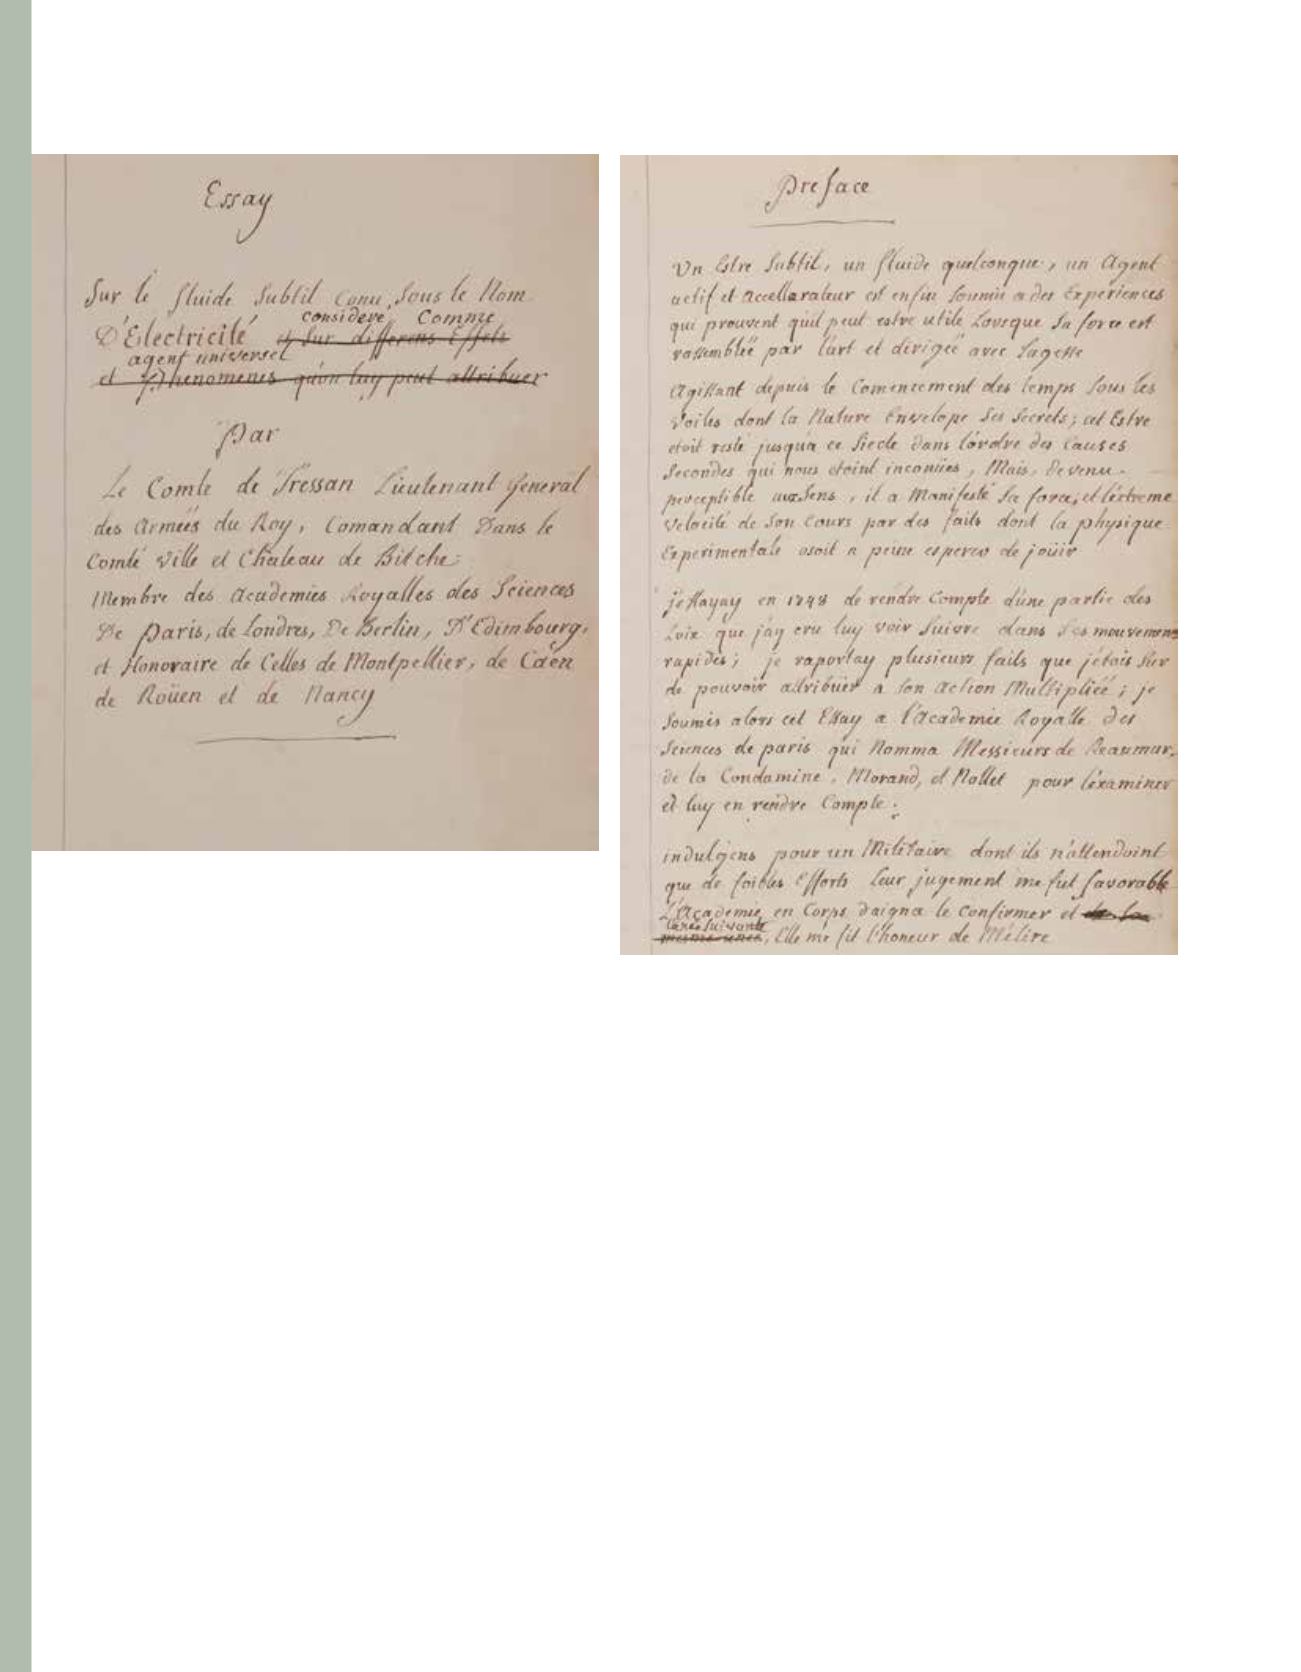 Essay
Sur le fluide Subtil Conu Sous le Nom
consideré Comme
D'Electricité et Sur differens Effets
agent universel
et Phenomenes qu'on luy peut attribuer
Par
Le Comte de Tressan Lieutenant General
des Armées du Roy, Comandant Dans le
Comté Ville et Chateau de Bitche
Membre des Academies Royalles des Sciences
De Paris, de Londres, De Berlin, D'Edimbourg,
et Honoraire de Celles de Montpellier, de Caën
de Roüen et de Nancy
Preface
Un Estre Subtil, un fluide quelconque, un Agent
actif et accellerateur est enfin Soumis a des Experiences
qui prouvent quil peut estre utile Lorsque Sa force est
rassemblée par l'art et dirigée avec Sagesse
Agissant depuis le Comencement des temps Sous les
Voiles dont la Nature Envelope Ses Secrets; cet Estre
etoit resté jusqu'a ce Siecle dans l'ordre des Causes
Secondes qui nous etoint inconües, Mais, devenu
perceptible aux Sens, il a Manifesté Sa force, et l'extreme
Velocité de Son Cours par des faits dont la physique
Experimentale osoit a peine esperer de joüir
j'essayay en 1748 de rendre Compte d'une partie des
Loix que j'ay cru luy voir Suivre dans Ses mouvemens
rapides; je raportay plusieurs faits que j'etois Sur
de pouvoir attribüer a Son action Multipliée; je
Soumis alors cet Essay a l'Academie Royalle des
Sciences de paris qui Nomma Messieurs de Reaumur,
de la Condamine, Morand, et Nollet pour l'examiner
et luy en rendre Compte;
indulgens pour un Militaire dont ils n'attendoint
que de foibles Efforts Leur jugement me fut favorable
L'Academie en Corps daigna le Confirmer et des la
l'année Suivante
mesme année, Elle me fit l'honeur de M'élire